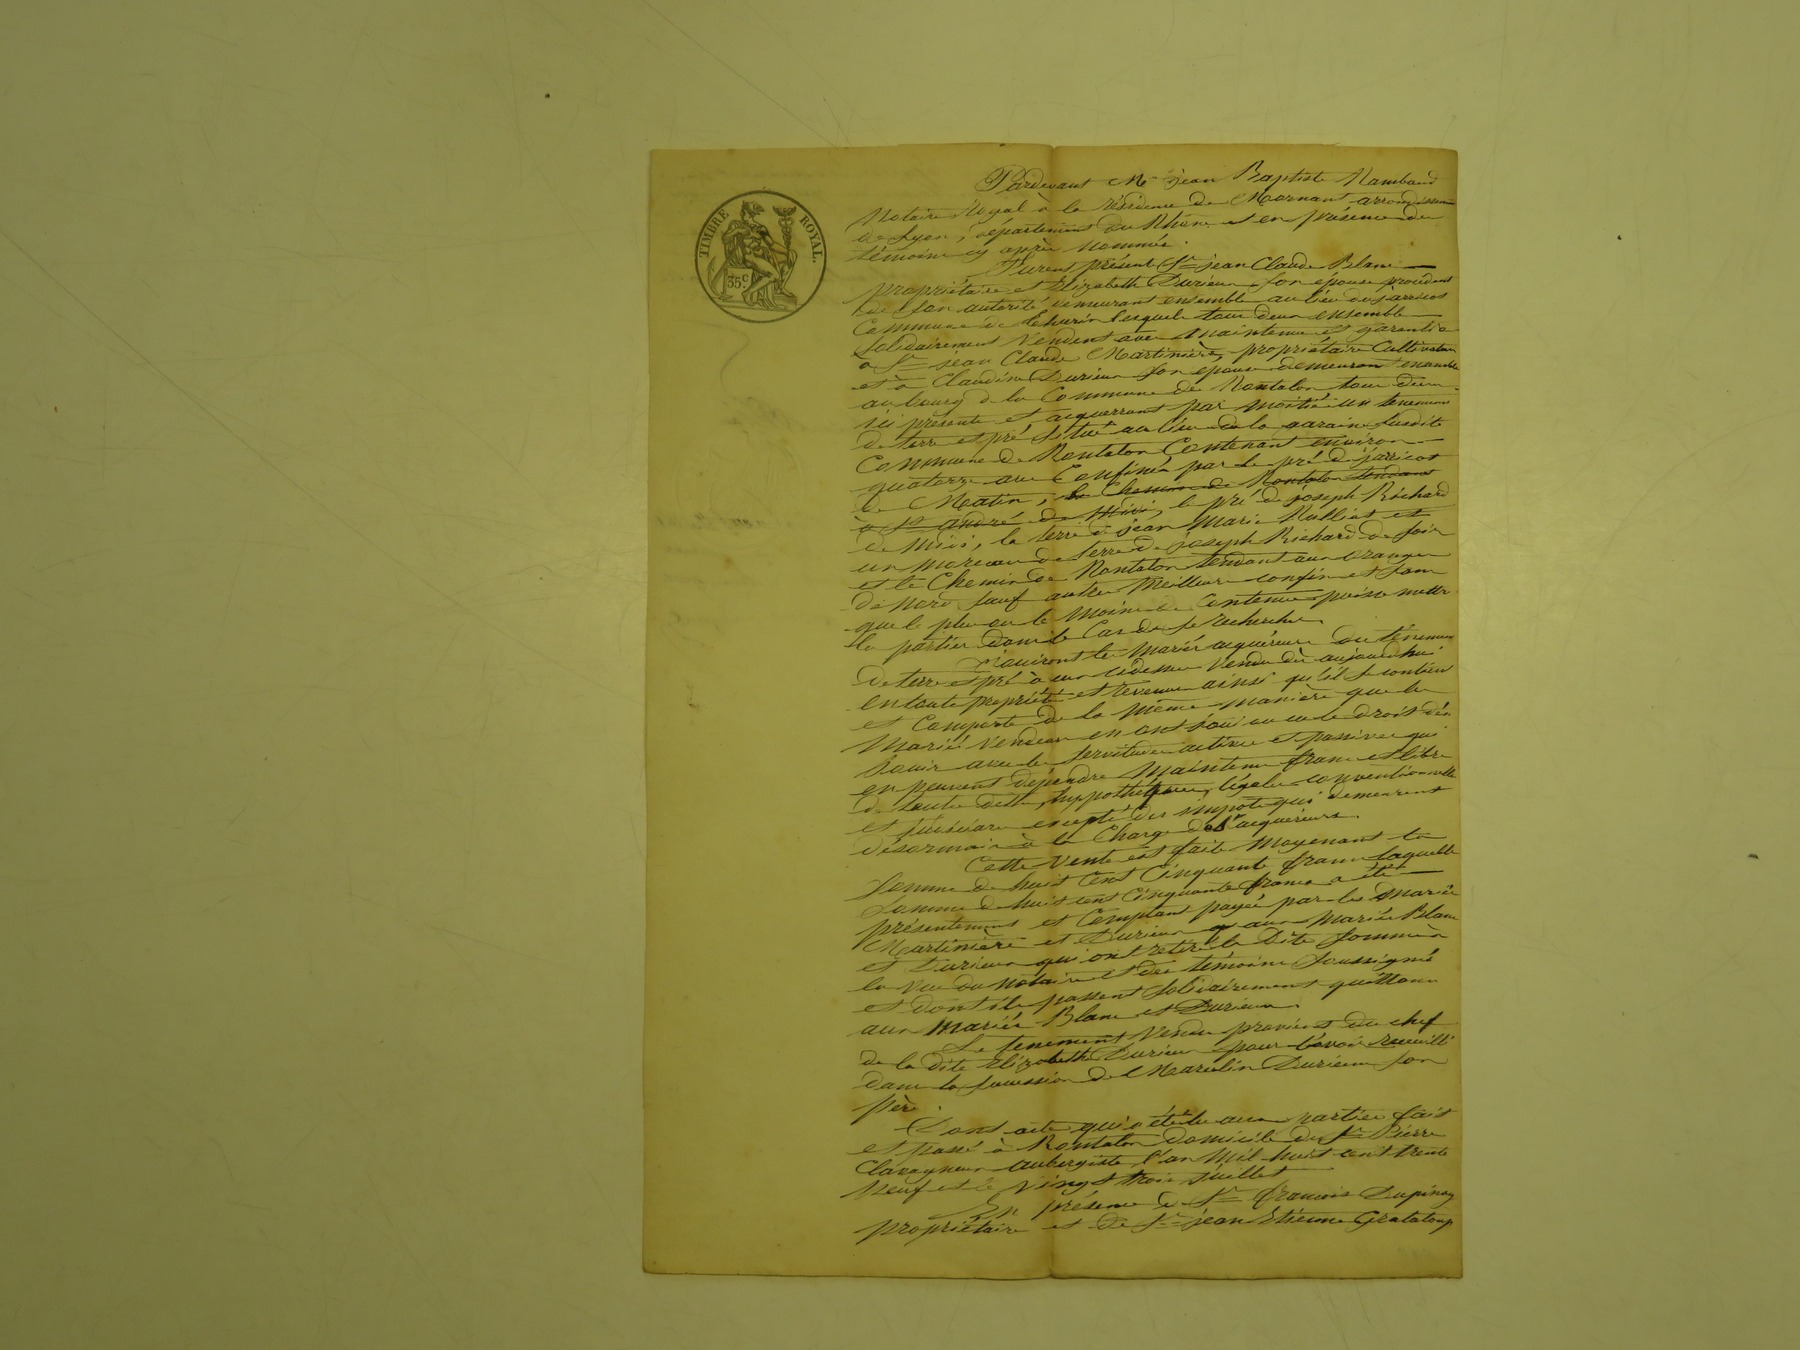 TIMBRE ROYAL.
35c.
Pardevant Me jean Baptiste Rambaud
Notaire Royal à la résidence de Mornant arrondissemen
de Lyon, département du Rhône et en présence des
témoins cy après nommés.
Furent présent Sr jean Claude Blanc
propriétaire et Elizabeth Durieux son épouse procédant
de son autorité demeurant ensemble au lieu du jarricot
Commune de Thurin lesquels tous deux ensemble
Solidairement Vendent avec maintenue et garantie
à Sr jean Claude Martinière, propriétaire Cultivateur
et à Claudine Durieux son épouse demeurant ensemble
au bourg de la Commune de Rontalon tous deux
ici présents et acquerrant par moitié un tenement
de terre et pré situé au lieu de la garaine susdite
Commune de Rontalon Contenant environ
quatorze ares Confiné par le pré de jarricot
de Matin, le Chemin de Rontalon tendant
à St andré de Midi, le pré de joseph Richard
de Midi, la terre de jean Marie Rulliat et
un morceau de terre de joseph Richard de soir
et le Chemin de Rontalon tendant aux oranger
de nord sauf autres Meilleurs confins et sans
que le plus ou le moins de Contenue puisse nuttr
les parties dans le Cas de se rechercher.
jouiront les mariés acquéreurs du ténement
de terre et pré à eux cidessus Vendu dès aujourdhui
en toute propriété et revenus ainsi qu'il se contient
et Comporte de la même manière que les
Mariés Vendeurs en ont joui ou eu le droit d'en
jouir avec les servitudes actives et passives qui
en peuvent dépendre maintenu franc et libre
de toutes dette, hyppothèques, légales conventionnelle
et judiciaire excepté des impots qui demeurent
désormais à la Charge des acquéreurs.
Cette Vente est faite Moyenant la
somme de huit Cent Cinquante francs laquelle
somme de huit cent Cinquante francs a été
présentement et Comptant payée par les Mariés
Martinière et Durieux aux mariés Blanc
et Durieux qui ont retiré la dite somme à
la vue du notaire et des témoins soussignés
et dont ils passent solidairement quittance
aux mariés Blanc et Durieux.
Le tenement Vendu provient du chef
de la dite Elizabeth Durieux pour l'avoir recueilli
dans la sucession de Marcelin Durieux son
père.
Dont acte qui a été lu aux parties fait
et passé à Rontalon domicile du Sr Pierre
Clavagneux aubergiste l'an Mil huit cent trente
neuf et le Vingt trois juillet
En présence de Sr françois Dupinay
propriétaire et de Sr jean Etienne Grataloup